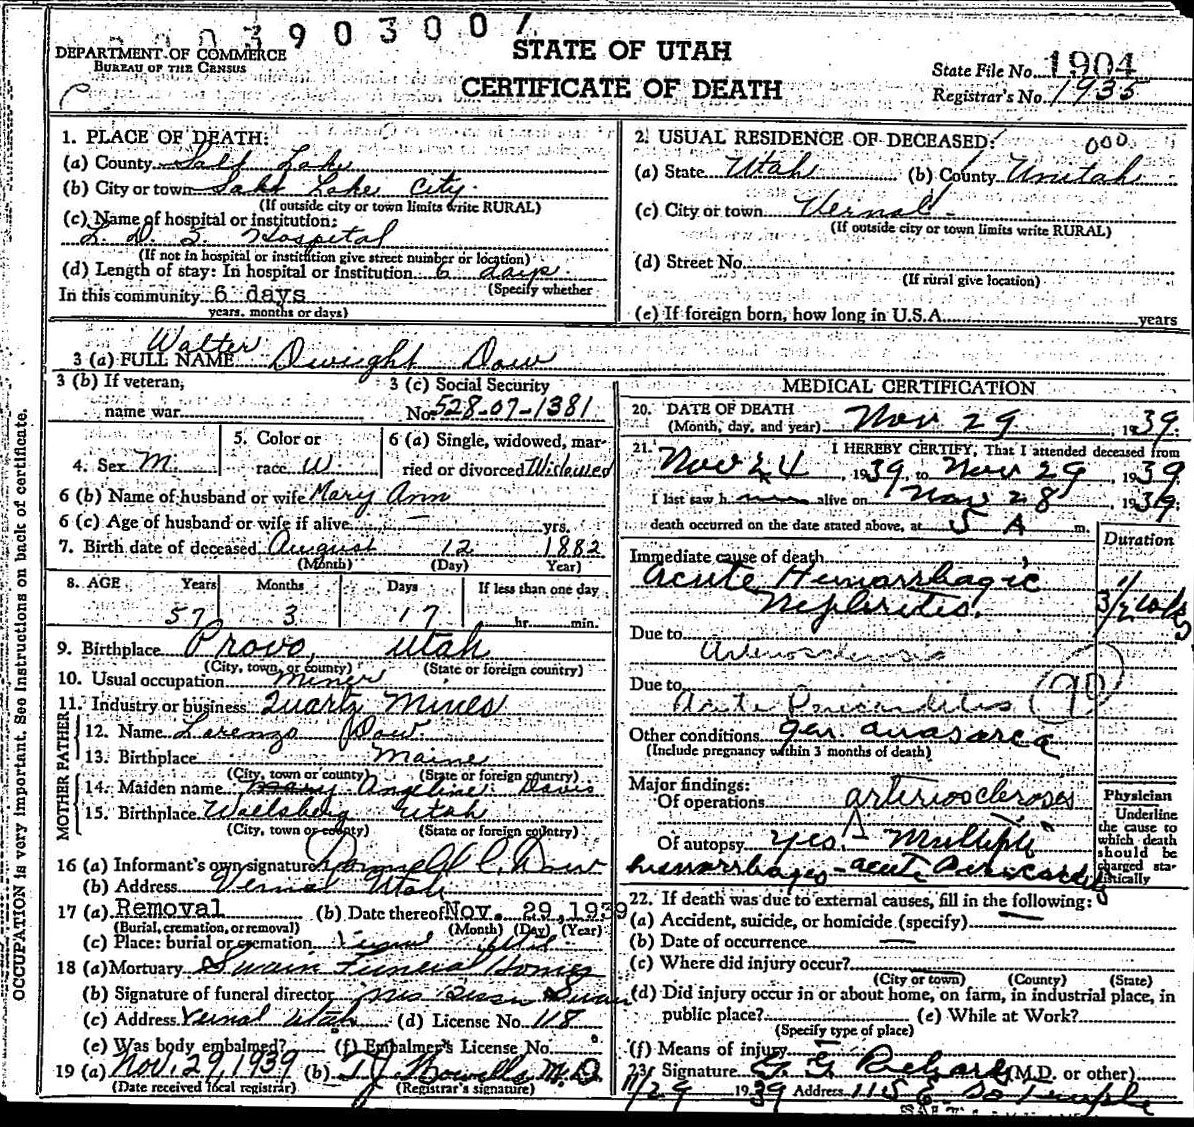 3903007
DEPARTMENT OF COMMERCE
BUREAU OF THE CENSUS
STATE OF UTAH
CERTIFICATE OF DEATH
State File No. 1904
Registrar's No. 1935
1. PLACE OF DEATH:
(a) County Salt Lake
(b) City or town Salt Lake City.
(If outside city or town limits write RURAL)
(c) Name of hospital or institution:
L. D. S. Hospital
(If not in hospital or institution give street number or location)
(d) Length of stay: In hospital or institution 6 days
(Specify whether
In this community 6 days
years, months or days)
2. USUAL RESIDENCE OF DECEASED: 000
(a) State Utah (b) County Uintah
(c) City or town Vernal
(If outside city or town limits write RURAL)
(d) Street No.
(If rural give location)
(e) If foreign born, how long in U.S.A. years
Walter
3 (a) FULL NAME Dwight Dow
3 (b) If veteran,
name war
3 (c) Social Security
No. 528-07-1381
4. Sex M.
5. Color or
race W
6 (a) Single, widowed, mar-
ried or divorced Widowed
6 (b) Name of husband or wife Mary Ann
6 (c) Age of husband or wife if alive — yrs.
7. Birth date of deceased August 12 1882
(Month) (Day) Year)
8. AGE Years Months Days If less than one day
57 3 17 hr. min.
9. Birthplace Provo, Utah
(City, town, or county) (State or foreign country)
10. Usual occupation Miner
11. Industry or business Quartz Mines
FATHER
12. Name Lorenzo Dow
13. Birthplace Maine
(City, town or county) (State or foreign country)
MOTHER
14. Maiden name Mary Angeline Davis
15. Birthplace Wallsberg Utah
(City, town or county) (State or foreign country)
16 (a) Informant's own signature Dow
(b) Address Vernal Utah
17 (a) Removal (b) Date thereof Nov. 29, 1939
(Burial, cremation, or removal) (Month) (Day) (Year)
(c) Place: burial or cremation Vernal Utah
18 (a) Mortuary Swain Funeral Home
(b) Signature of funeral director Mrs Swain
(c) Address Vernal Utah (d) License No. 118
(e) Was body embalmed? (f) Embalmer's License No.
19 (a) Nov. 29, 1939 (b) T J Howells M.D.
(Date received local registrar) (Registrar's signature)
OCCUPATION is very important. See Instructions on back of certificate.
MEDICAL CERTIFICATION
20. DATE OF DEATH
(Month, day, and year) Nov 29, 1939.
21. I HEREBY CERTIFY, That I attended deceased from
Nov 24, 1939, to Nov 29, 1939
I last saw h im alive on Nov 28, 1939.
death occurred on the date stated above, at 5 A m.
Duration
Immediate cause of death
Acute Hemorrhagic
Nephritis. 3 1/2 wks
Due to
Arteriosclerosis
Due to
Acute Pericarditis (90)
Other conditions gen anasarca
(Include pregnancy within 3 months of death)
Major findings:
Of operations arteriosclerosis
Of autopsy yes. Multiple
hemorrhages - acute pericarditis
Physician
Underline
the cause to
which death
should be
charged sta-
tistically
22. If death was due to external causes, fill in the following:
(a) Accident, suicide, or homicide (specify) —
(b) Date of occurrence —
(c) Where did injury occur?
(City or town) (County) (State)
(d) Did injury occur in or about home, on farm, in industrial place, in
public place? (e) While at Work?
(Specify type of place)
(f) Means of injury
23. Signature G. G. Richards (M.D. or other)
11/29 1939 Address 115 E. So Temple